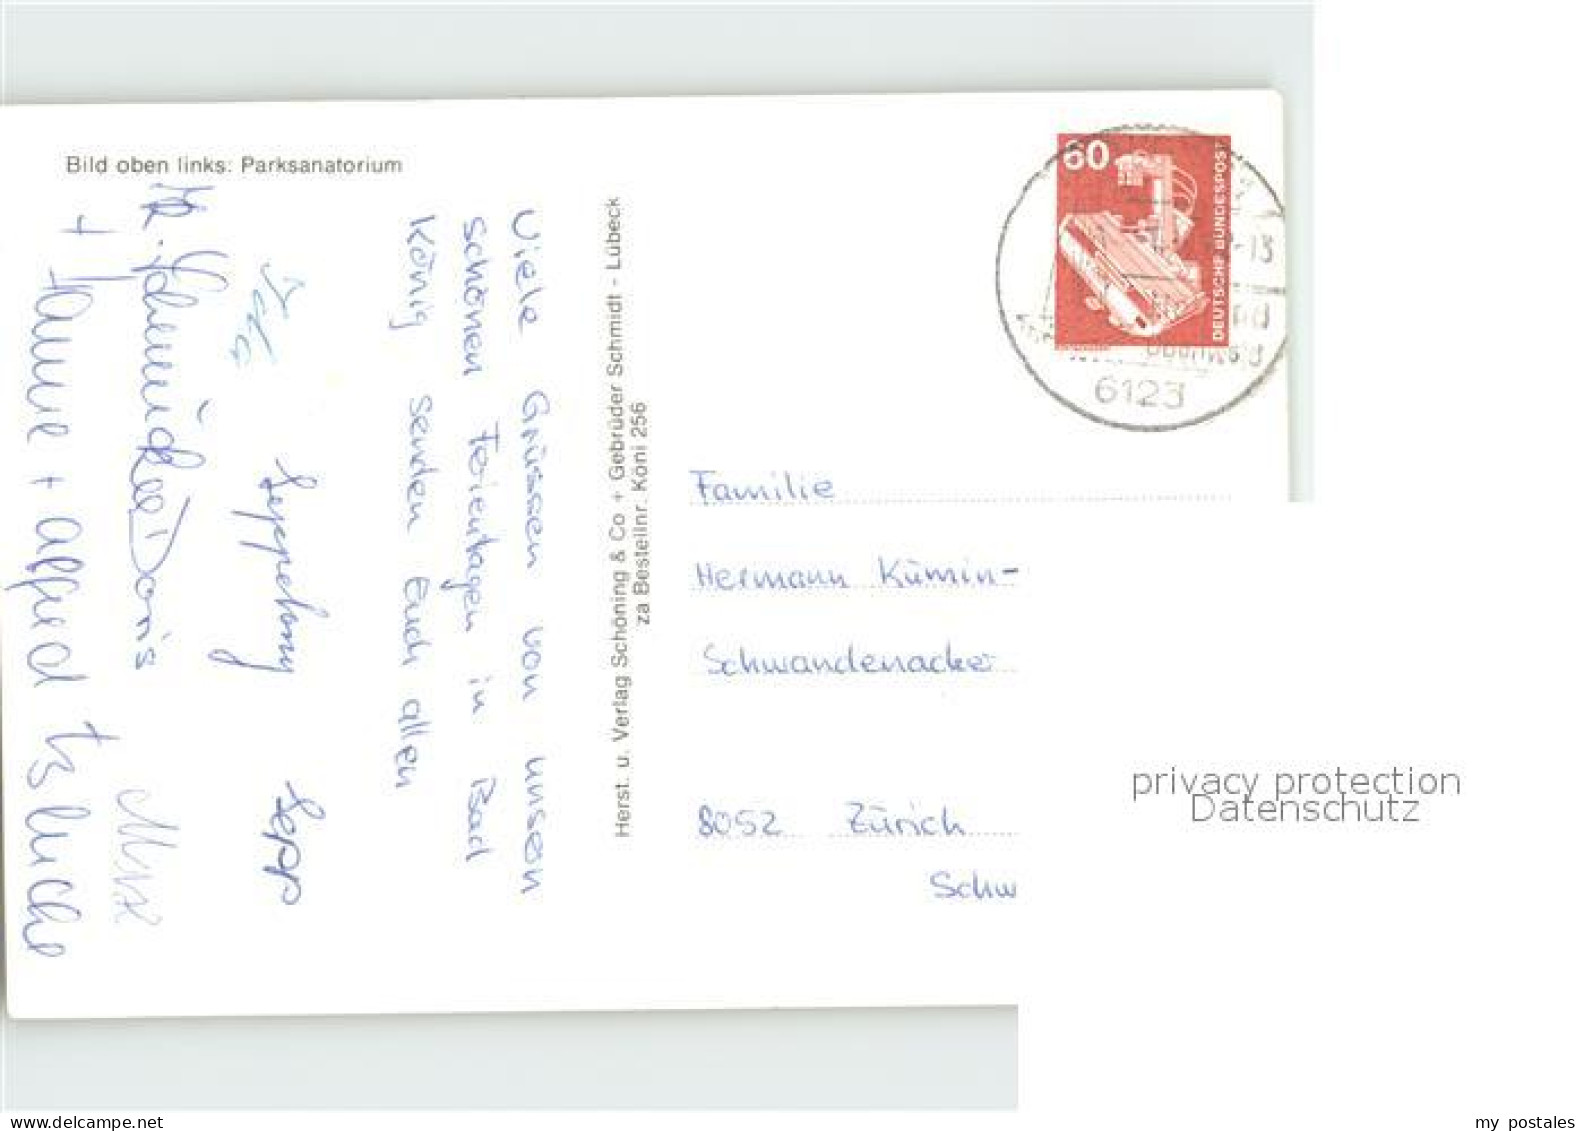 Bild oben links: Parksanatorium
Viele Grüssen von unseren
schönen Ferientagen in Bad
König senden Euch allen
Seppelony Sepp
Doris
+ Hanne + Alfred
Herst. u. Verlag Schöning & Co + Gebrüder Schmidt - Lübeck
za Bestellnr. Köni 256
60
DEUTSCHE BUNDESPOST
-13
Odenwald
6123
Familie
Hermann Kümin-
Schwandenacker
8052 Zürich
Schw
privacy protection
Datenschutz
www.delcampe.net
my postales